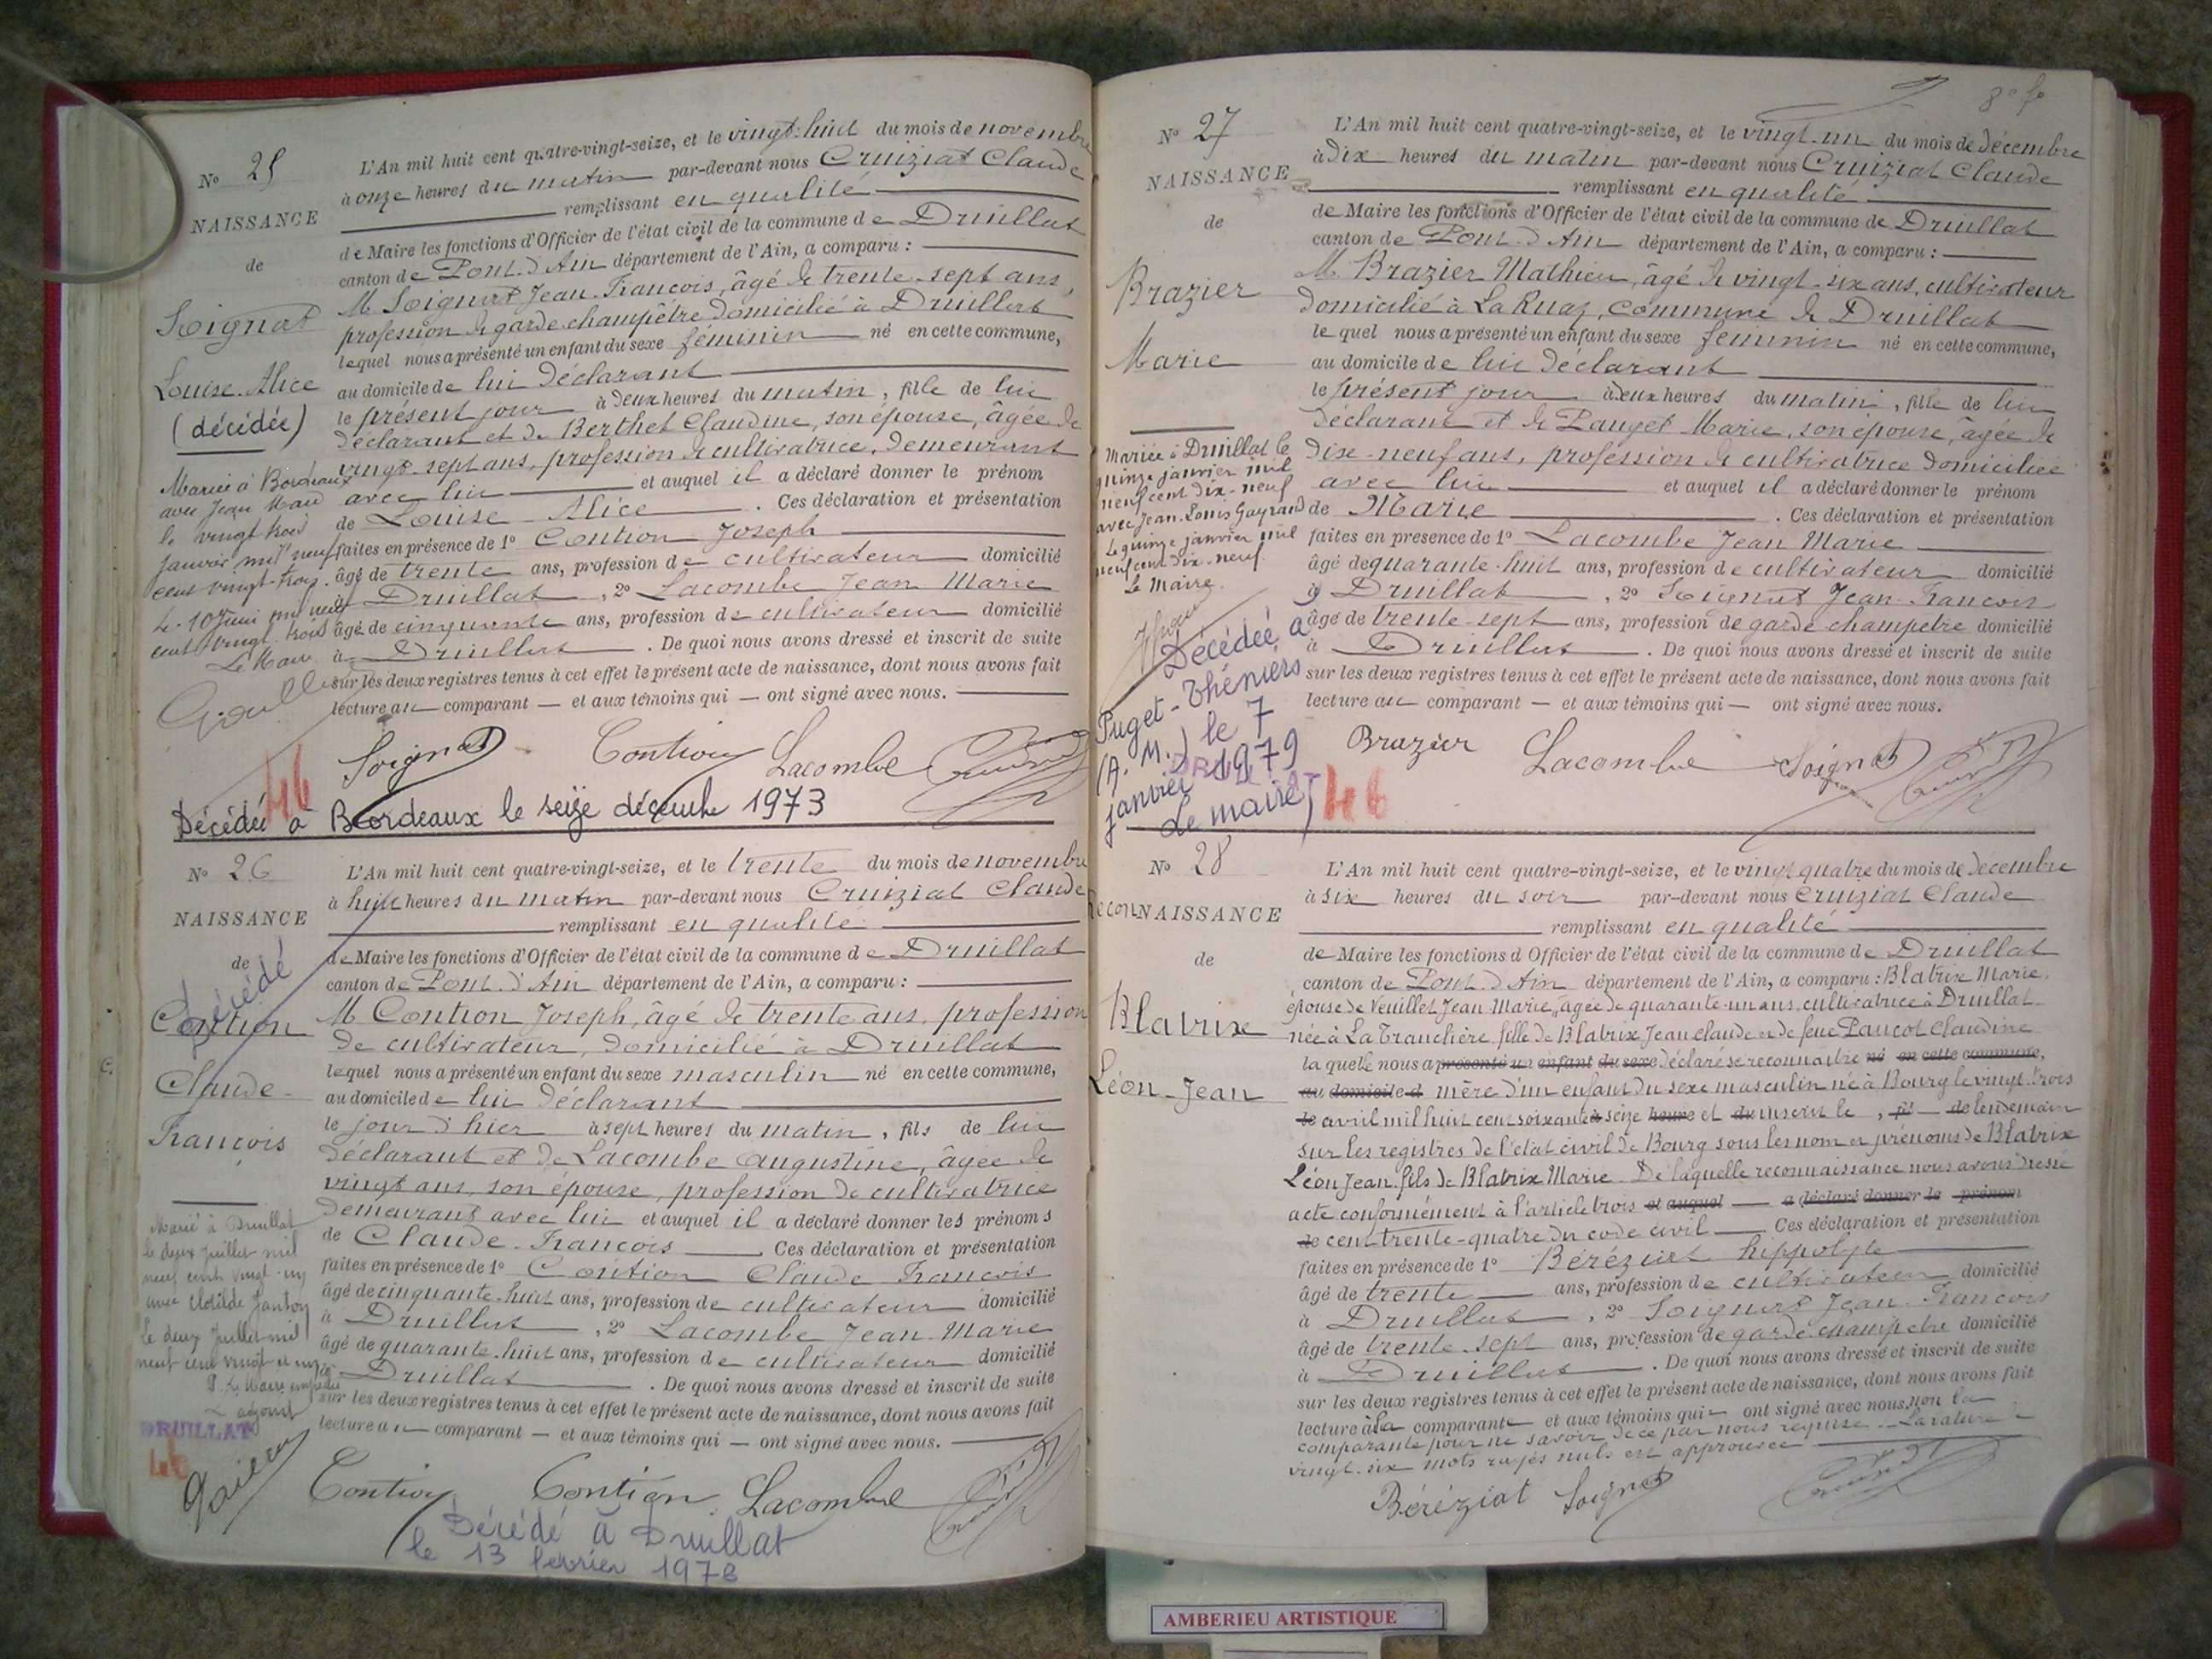 Nº 25
NAISSANCE
de
Soignat
Louise-Alice
(décédée)
Mariée à Bordeaux
avec Jean
le vingt trois
janvier mil neuf
cent vingt-trois.
Le 10 Juin mil neuf
cent vingt trois
Le Maire
L'An mil huit cent quatre-vingt-seize, et le vingt-huit du mois de novembre
à onze heures du matin par-devant nous Cruiziat Claude
remplissant en qualité
de Maire les fonctions d'Officier de l'état civil de la commune de Druillat
canton de Pont-d'Ain département de l'Ain, a comparu :
M Soignat Jean-François, âgé de trente-sept ans,
profession de garde-champêtre domicilié à Druillat
lequel nous a présenté un enfant du sexe féminin né en cette commune,
au domicile de lui déclarant
le présent jour à deux heures du matin, fille de lui
déclarant et de Berthet Claudine, son épouse, âgée de
vingt-sept ans, profession de cultivatrice, demeurant
avec lui et auquel il a déclaré donner le prénom
de Louise-Alice. Ces déclaration et présentation
faites en présence de 1º Contion Joseph
âgé de trente ans, profession de cultivateur domicilié
à Druillat, 2º Lacombe Jean Marie
âgé de cinquante ans, profession de cultivateur domicilié
à Druillat. De quoi nous avons dressé et inscrit de suite
sur les deux registres tenus à cet effet le présent acte de naissance, dont nous avons fait
lecture au comparant — et aux témoins qui — ont signé avec nous.
Soignat Contion Lacombe
46
Décédée à Bordeaux le seize décembre 1973
Nº 26
NAISSANCE
de
Décédé
Contion
Claude-
François
Marié à Druillat
le deux juillet mil
neuf cent vingt-un
avec Clotilde Janton
Le deux Juillet mil
neuf cent vingt et un
P. le Maire empêché
L'adjoint
DRUILLAT
46
L'An mil huit cent quatre-vingt-seize, et le trente du mois de novembre
à huit heures du matin par-devant nous Cruiziat Claude
remplissant en qualité
de Maire les fonctions d'Officier de l'état civil de la commune de Druillat
canton de Pont-d'Ain département de l'Ain, a comparu :
M Contion Joseph, âgé de trente ans, profession
de cultivateur, domicilié à Druillat
lequel nous a présenté un enfant du sexe masculin né en cette commune,
au domicile de lui déclarant
le jour d'hier à sept heures du matin, fils de lui
déclarant et de Lacombe Augustine, âgée de
vingt ans, son épouse, profession de cultivatrice
demeurant avec lui et auquel il a déclaré donner les prénoms
de Claude-François. Ces déclaration et présentation
faites en présence de 1º Contion Claude François
âgé de cinquante-huit ans, profession de cultivateur domicilié
à Druillat, 2º Lacombe Jean-Marie
âgé de quarante-huit ans, profession de cultivateur domicilié
à Druillat. De quoi nous avons dressé et inscrit de suite
sur les deux registres tenus à cet effet le présent acte de naissance, dont nous avons fait
lecture au comparant — et aux témoins qui — ont signé avec nous.
Contion Contion Lacombe
Décédé à Druillat
le 13 février 1978
8e fo
Nº 27
NAISSANCE
de
Brazier
Marie
Mariée à Druillat le
quinze janvier mil
neuf cent dix-neuf
avec Jean-Louis Gayraud
Le quinze janvier mil
neuf cent dix-neuf
Le Maire.
Décédée à
Puget-Théniers
(A.M.) le 7
janvier 1979
Le maire,
DRUILLAT
46
L'An mil huit cent quatre-vingt-seize, et le vingt-un du mois de décembre
à dix heures du matin par-devant nous Cruiziat Claude
remplissant en qualité
de Maire les fonctions d'Officier de l'état civil de la commune de Druillat
canton de Pont-d'Ain département de l'Ain, a comparu :
M Brazier Mathieu, âgé de vingt-six ans, cultivateur
domicilié à La Ruaz, commune de Druillat
le quel nous a présenté un enfant du sexe féminin né en cette commune,
au domicile de lui déclarant
le présent jour à deux heures du matin, fille de lui
déclarant et de Pauget Marie, son épouse, âgée de
dix-neuf ans, profession de cultivatrice domiciliée
avec lui et auquel il a déclaré donner le prénom
de Marie. Ces déclaration et présentation
faites en présence de 1º Lacombe Jean Marie
âgé de quarante-huit ans, profession de cultivateur domicilié
à Druillat, 2º Soignat Jean-François
âgé de trente-sept ans, profession de garde champêtre domicilié
à Druillat. De quoi nous avons dressé et inscrit de suite
sur les deux registres tenus à cet effet le présent acte de naissance, dont nous avons fait
lecture au comparant — et aux témoins qui — ont signé avec nous.
Brazier Lacombe Soignat
Nº 28
ReconNAISSANCE
de
Blatrix
Léon-Jean
L'An mil huit cent quatre-vingt-seize, et le vingt quatre du mois de décembre
à six heures du soir par-devant nous Cruiziat Claude
remplissant en qualité
de Maire les fonctions d'Officier de l'état civil de la commune de Druillat
canton de Pont-d'Ain département de l'Ain, a comparu : Blatrix Marie,
épouse de Veuillet Jean Marie, âgée de quarante-un ans, cultivatrice à Druillat
née à La Tranclière fille de Blatrix Jean Claude et de feue Paucot Claudine
la quelle nous a présenté un enfant du sexe déclaré se reconnaitre né en cette commune,
au domicile d mère d'un enfant du sexe masculin né à Bourg le vingt-trois
le avril mil huit cent soixante à seize heure et du inscrit le, fil de lendemain
sur les registres de l'état civil de Bourg sous les nom et prénoms de Blatrix
Léon Jean fils de Blatrix Marie. De laquelle reconnaissance nous avons dressé
acte conformément à l'article trois et auquel — a déclaré donner le prénom
de cent trente-quatre du code civil. Ces déclaration et présentation
faites en présence de 1º Béréziat hippolyte
âgé de trente ans, profession de cultivateur domicilié
à Druillat, 2º Soignat Jean-François
âgé de trente-sept ans, profession de garde-champêtre domicilié
à Druillat. De quoi nous avons dressé et inscrit de suite
sur les deux registres tenus à cet effet le présent acte de naissance, dont nous avons fait
lecture à la comparante et aux témoins qui ont signé avec nous, non la
comparante pour ne savoir de ce par nous requise. La rature
vingt-six mots rayés nuls est approuvée
Béréziat Soignat
AMBERIEU ARTISTIQUE